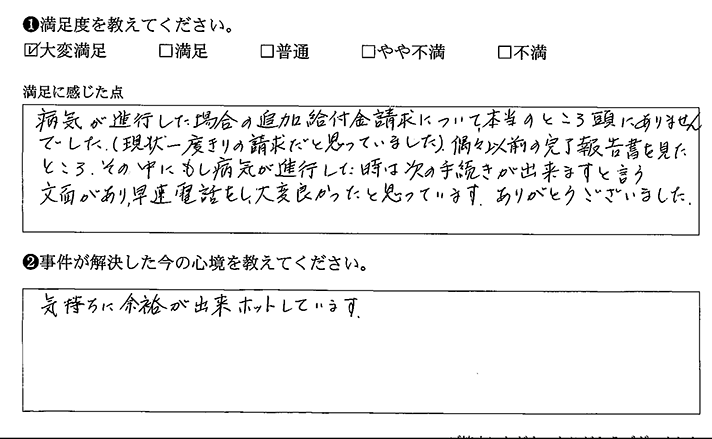 ❶満足度を教えてください。
☑大変満足 □満足 □普通 □やや不満 □不満
満足に感じた点
病気が進行した場合の追加給付金請求について、本当のところ頭にありません
でした。(現状一度きりの請求だと思っていました)。偶々以前の完了報告書を見た
ところ、その中にもし病気が進行した時は次の手続きが出来ますと言う
文面があり、早速電話をし、大変良かったと思っています。ありがとうございました。
❷事件が解決した今の心境を教えてください。
気持ちに余裕が出来ホットしています。